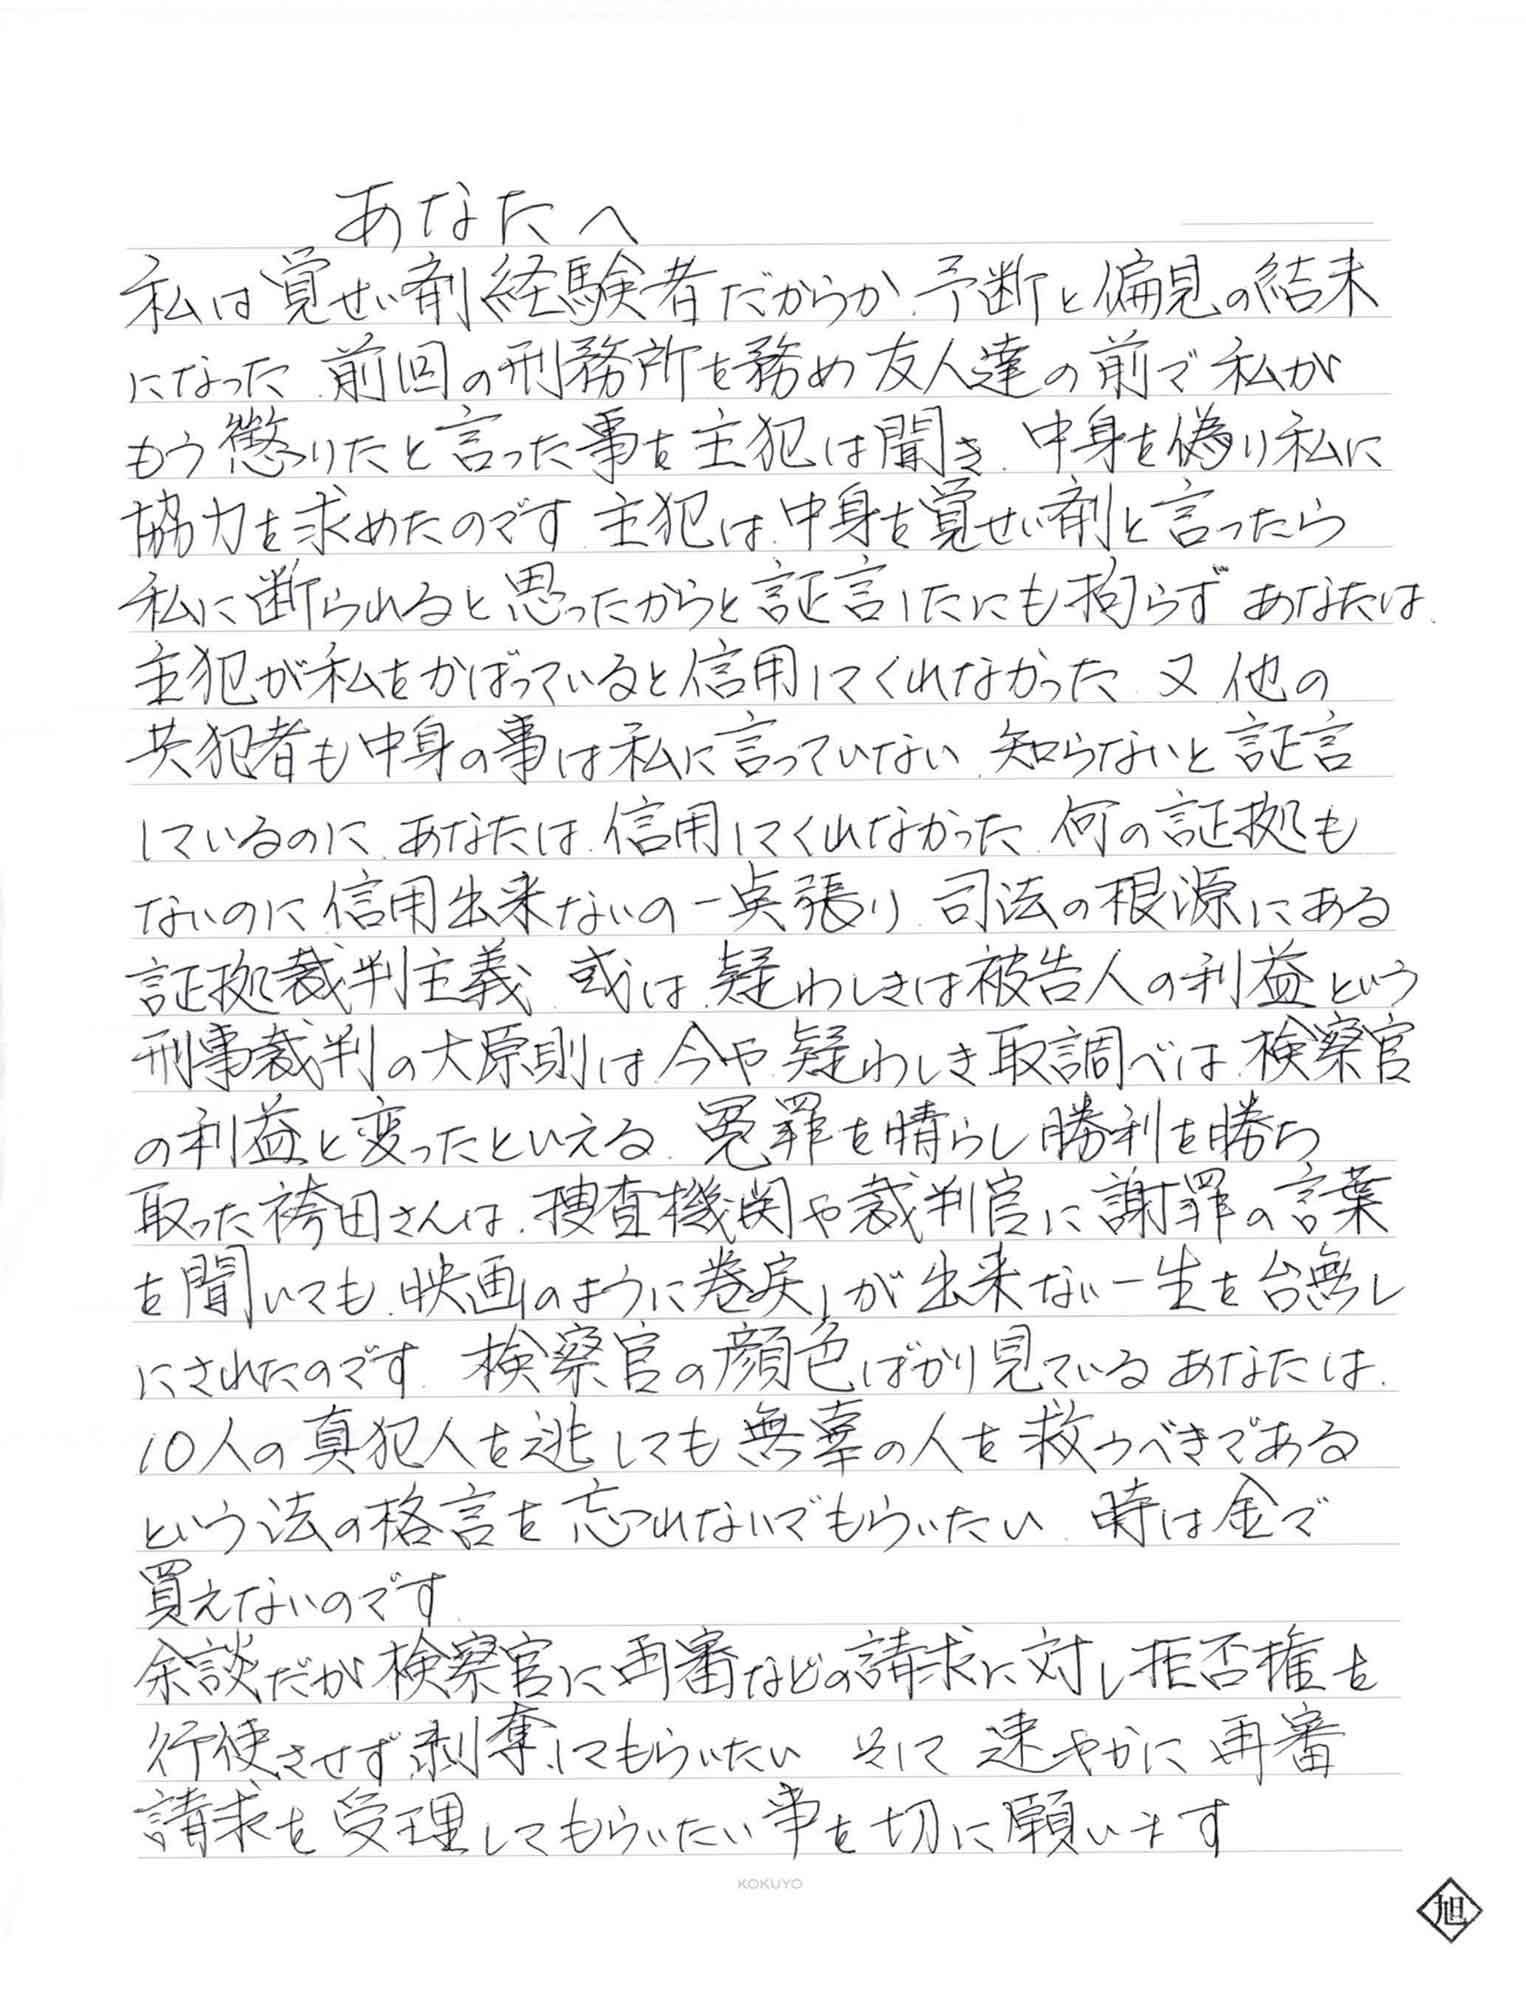 あなたへ
私は覚せい剤経験者だからか、予断と偏見の結末
になった。前回の刑務所を務め友人達の前で私が
もう懲りたと言った事を主犯は聞き、中身を偽り私に
協力を求めたのです。主犯は、中身を覚せい剤と言ったら
私に断られると思ったからと証言したにも拘らず あなたは、
主犯が私をかばっていると信用してくれなかった。又、他の
共犯者も中身の事は私に言っていない、知らないと証言
しているのに、あなたは、信用してくれなかった。何の証拠も
ないのに信用出来ないの一点張り、司法の根源にある
証拠裁判主義、或は、疑わしきは被告人の利益という
刑事裁判の大原則は、今や、疑わしき取調べは、検察官
の利益と変ったといえる。冤罪を晴らし勝利を勝ち
取った袴田さんは、捜査機関や裁判官に謝罪の言葉
を聞いても、映画のように巻戻しが出来ない一生を台無し
にされたのです。検察官の顔色ばかり見ている あなたは、
10人の真犯人を逃しても無辜の人を救うべきである
という法の格言を忘つれないでもらいたい。時は金で
買えないのです。
余談だが検察官に再審などの請求に対し拒否権を
行使させず、剥奪してもらいたい そして 速やかに 再審
請求を受理してもらいたい事を切に願います
KOKUYO
旭